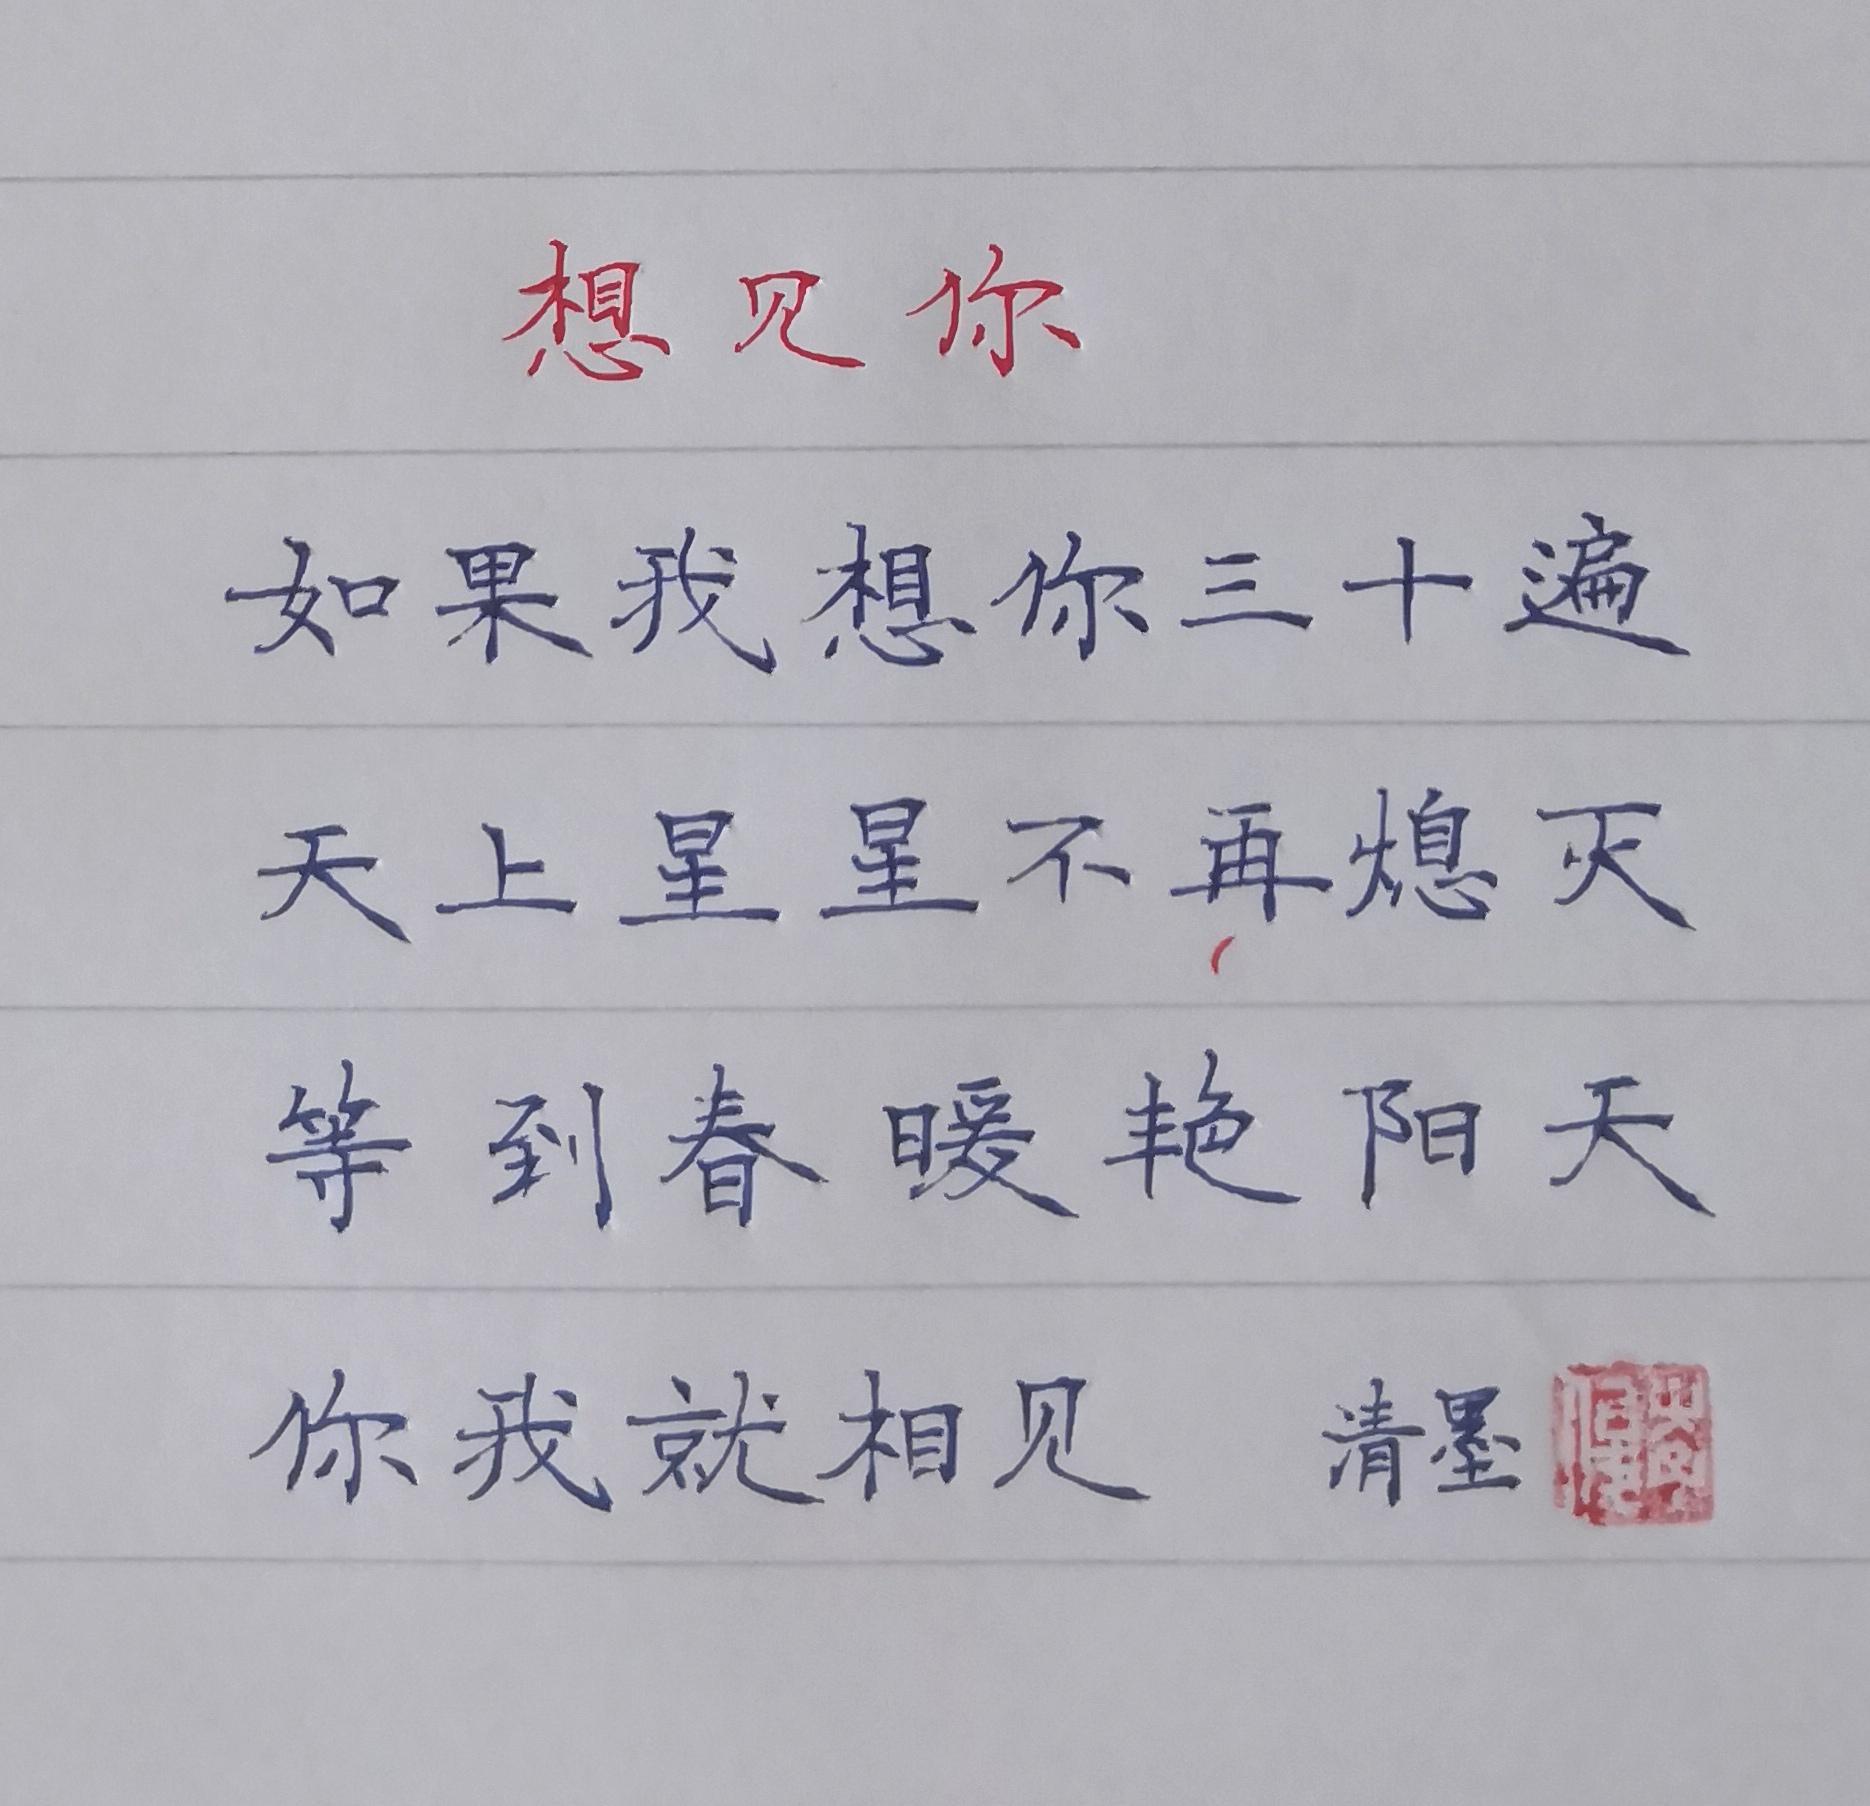 想见你
如果我想你三十遍
天上星星不再熄灭
等到春暖艳阳天
你我就相见 清墨